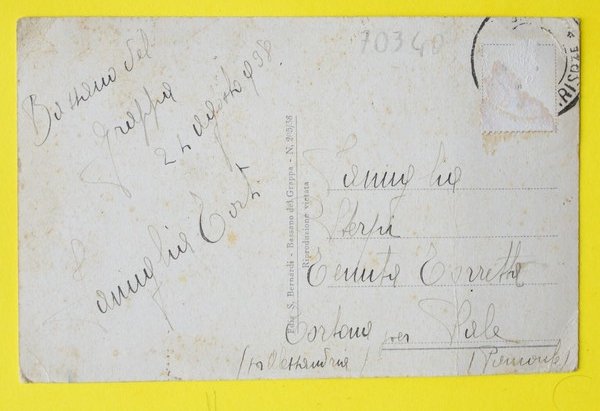 70340
Bassano del
Grappa
24 agosto 938
Famiglia
Ediz. S. Bernardi - Bassano del Grappa - N. 203/36
Riproduzione vietata
Famiglia
Sterpi
Tenuta Torretta
Tortona per Sale
(Alessandria) (Piemonte)